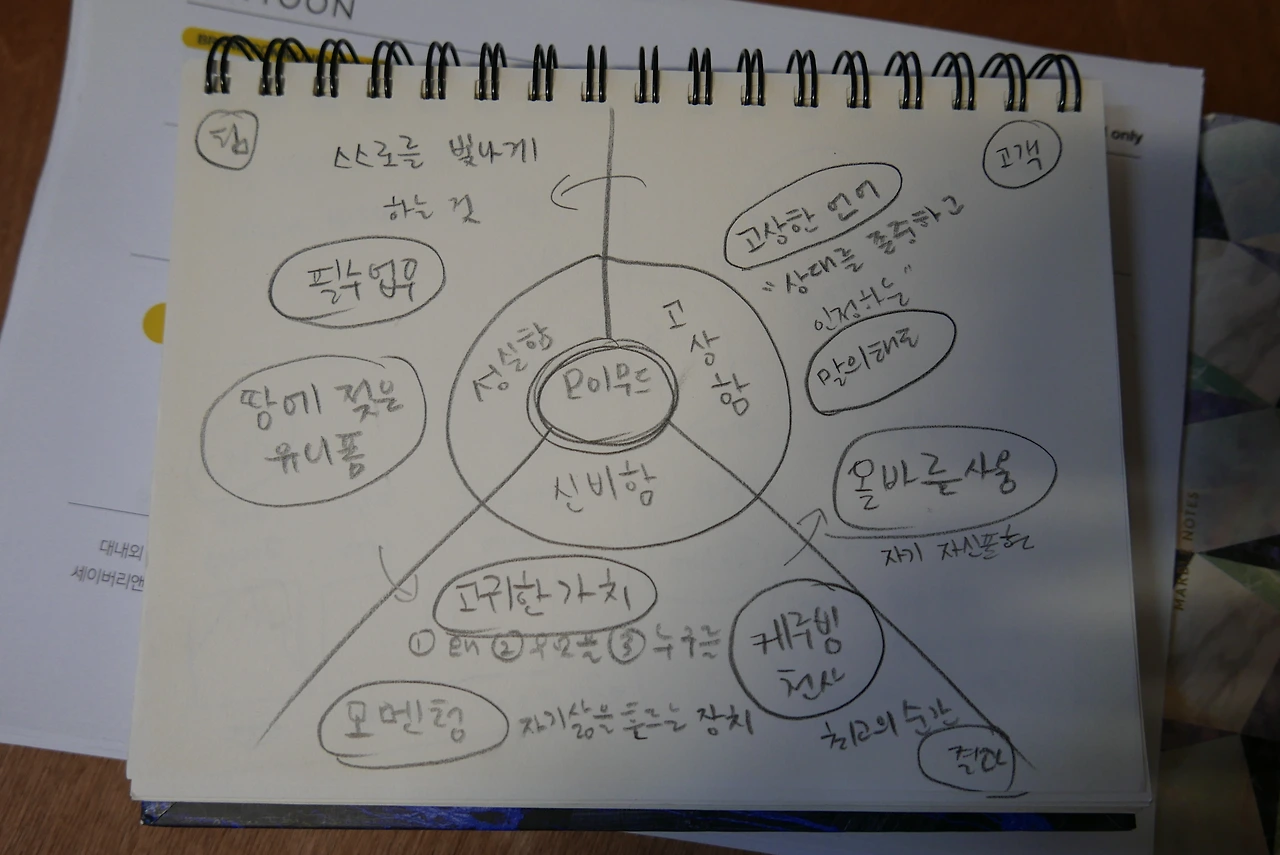 TOON
only
팀
스스로를 빛나게
하는 것
고객
고상한 언어
"상대를 존중하고
인정하는"
말의태도
필수업무
땅에 젖은
유니폼
성실함
고상함
모이무드
신비함
올바른사용
자기 자신표현
고귀한가치
① 왜 ② 무엇을 ③ 누구를
케루빔
천사
모멘텀
자기삶을 흔드는 장치
최고의 순간
결과
대내외
세이버리앤
NOTES